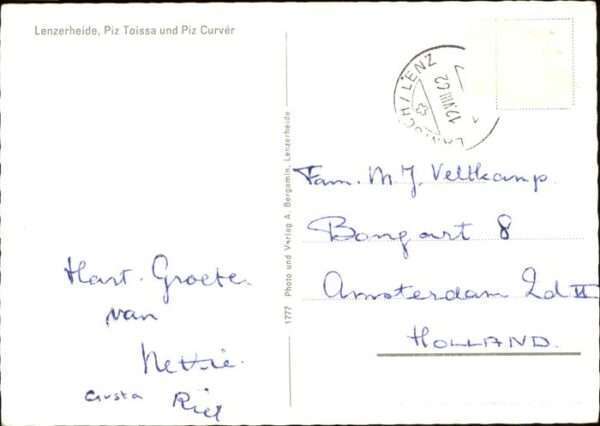 Lenzerheide, Piz Toissa und Piz Curvér
/LENZ
12 VIII 62
1777 Photo und Verlag A. Bergamin, Lenzerheide
Fam. M. J. Veltkamp
Bongart 8
Amsterdam 2d II
HOLLAND.
Hart. Groete.
van
Nettie.
Riel